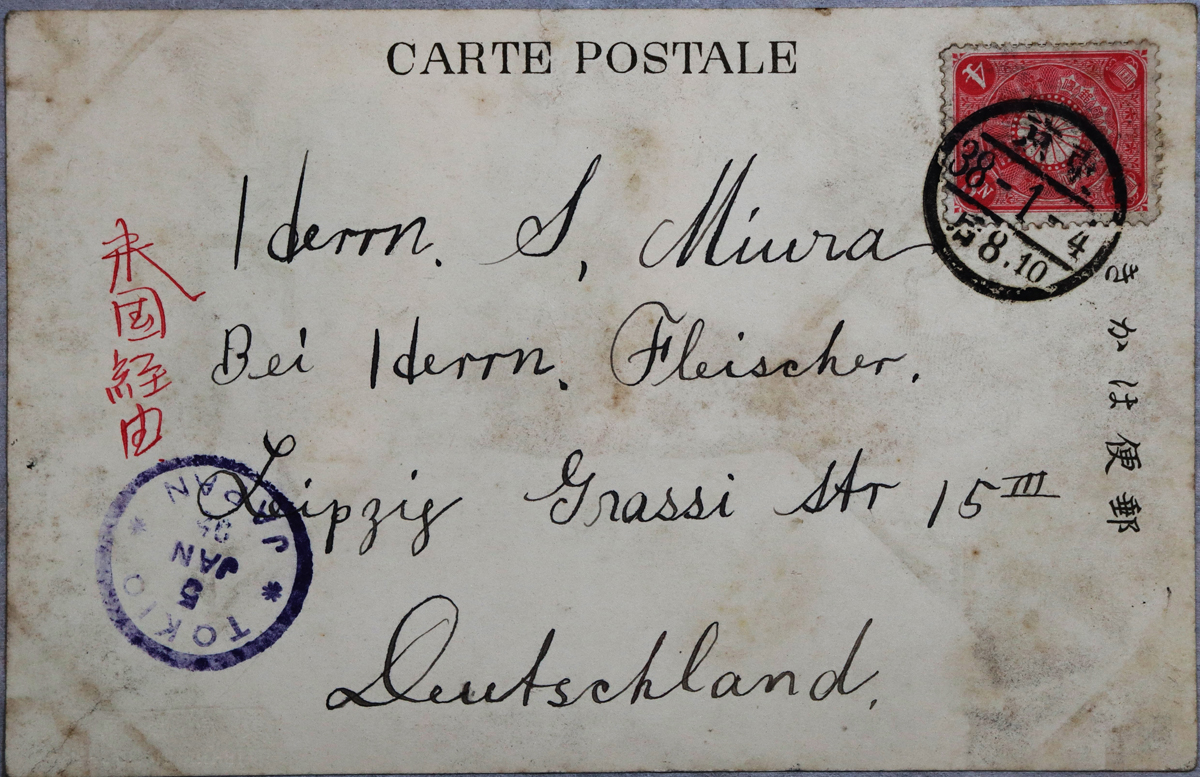 CARTE POSTALE
4
38-1-4
后8.10
郵便はかき
Herrn. S. Miura
Bei Herrn. Fleischer.
Leipzig Grassi Str 15 III
Deutschland.
米国経由
TOKIO
5
JAN
JAPAN